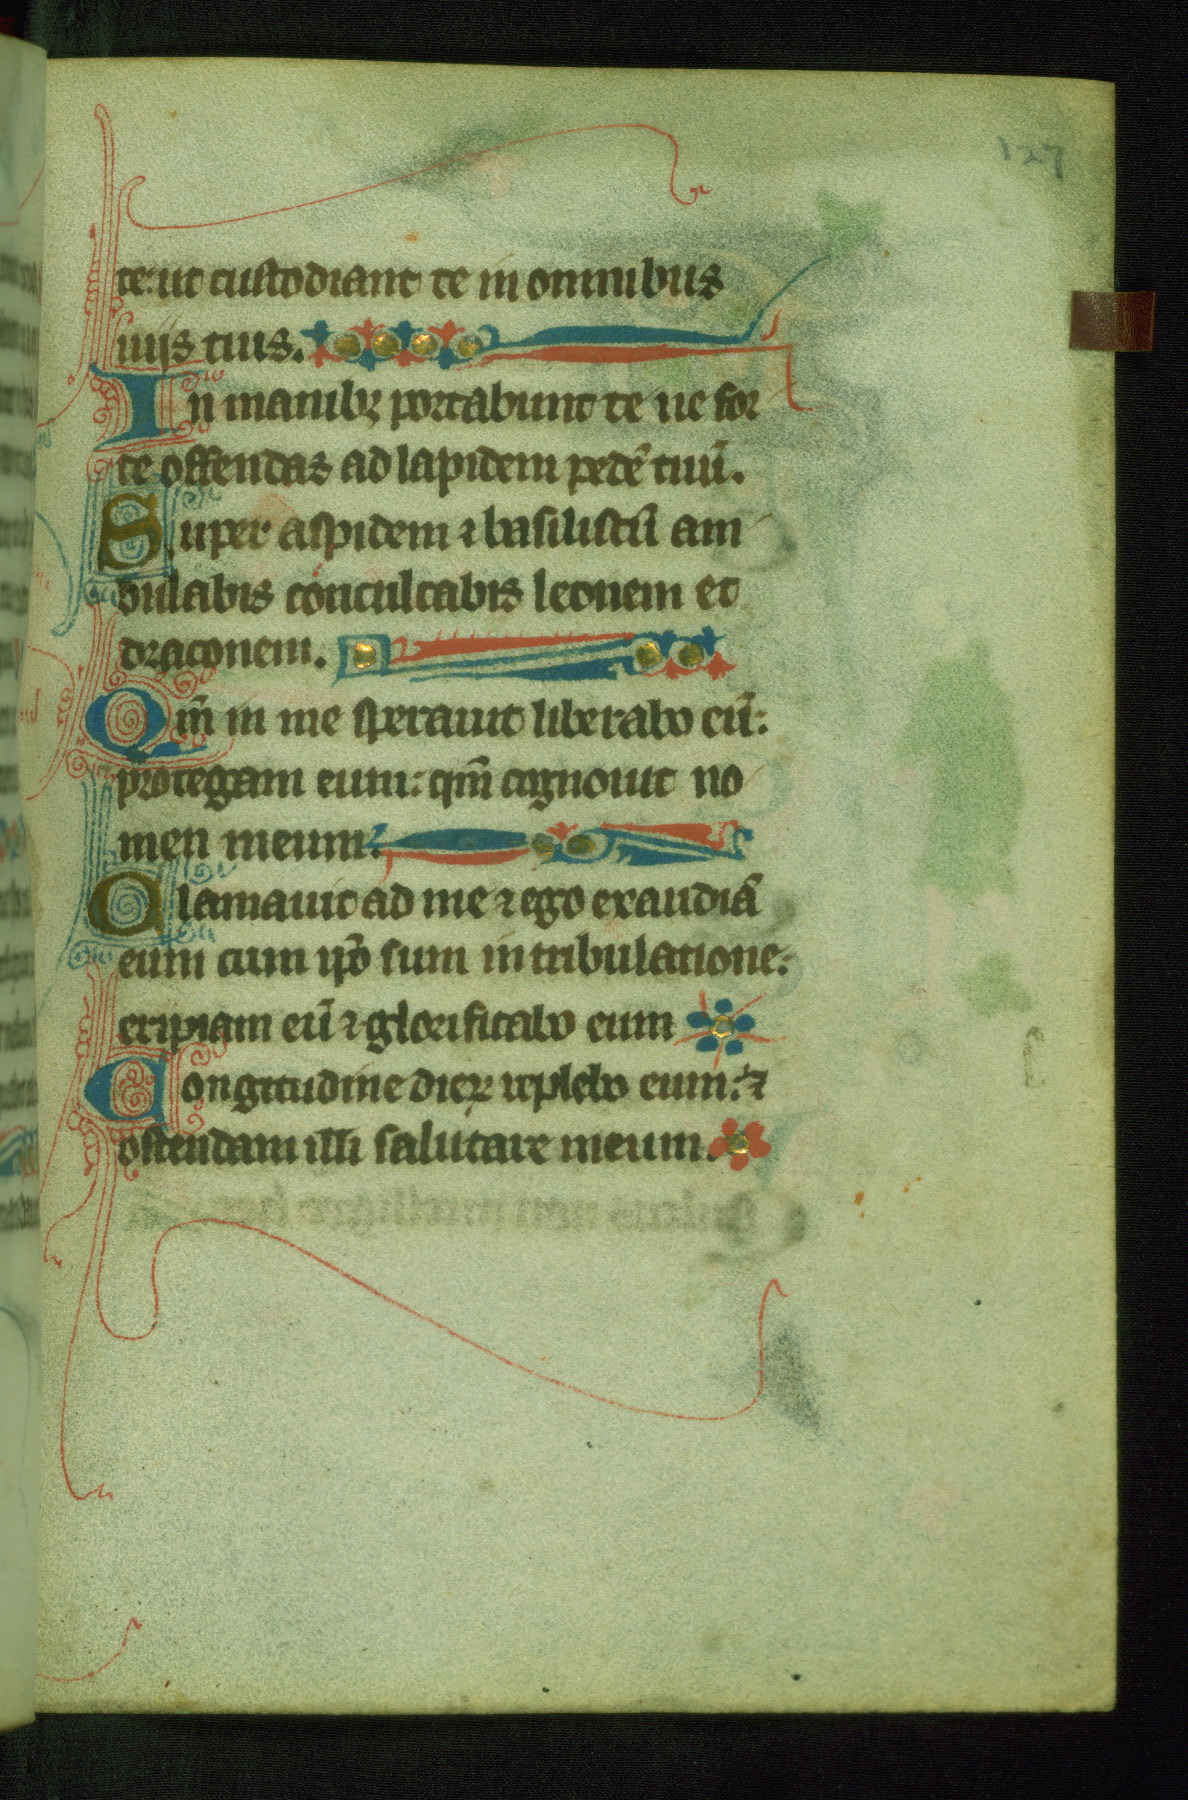 127
te: ut custodiant te in omnibus
uijs tuis.
In manibꝫ portabunt te ne for
te offendas ad lapidem pedē tuū.
Super aspidem ⁊ basiliscū am
bulabis conculcabis leonem et
draconem.
Qm̄ in me sperauit liberabo eū:
protegam eum: qm̄ cognouit no
men meum.
Clamauit ad me ⁊ ego exaudiā
eum cum ip̄o sum in tribulatione:
eripiam eū ⁊ glorificabo eum
Longitudine dieꝝ replebo eum: ⁊
ostendam illi salutare meum.